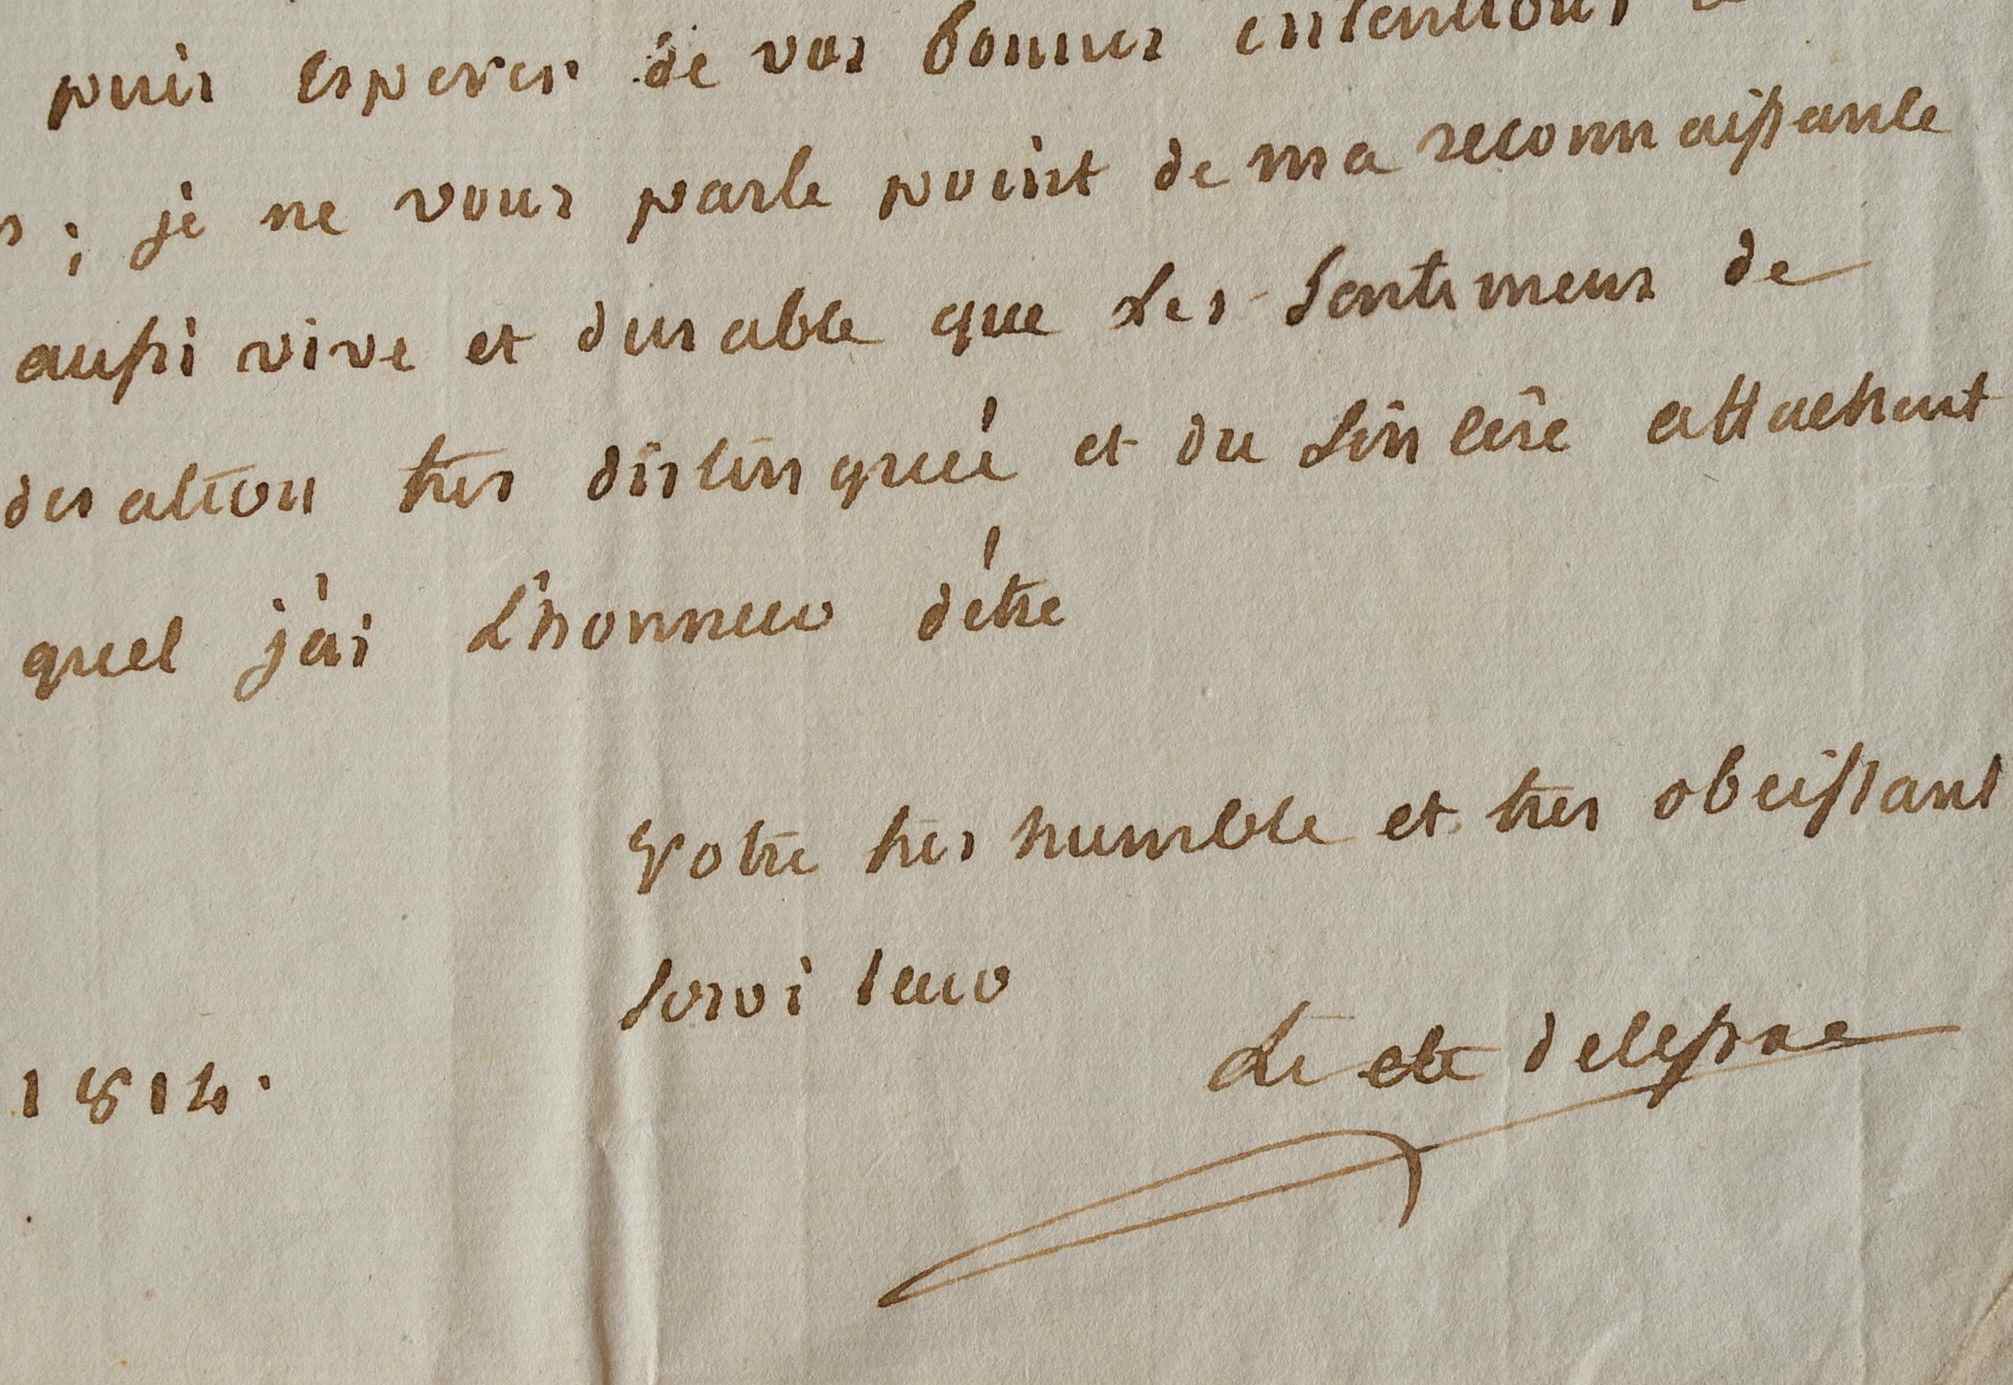 puis esperer de vos bonnes intentions
; je ne vous parle point de ma reconnaissance
aussi vive et durable que les sentimens de
deration tres distinguée et du sincère attachent
quel j'ai l'honneur d'être
Votre tres humble et tres obeissant
serviteur
Le cte delespine
1814.